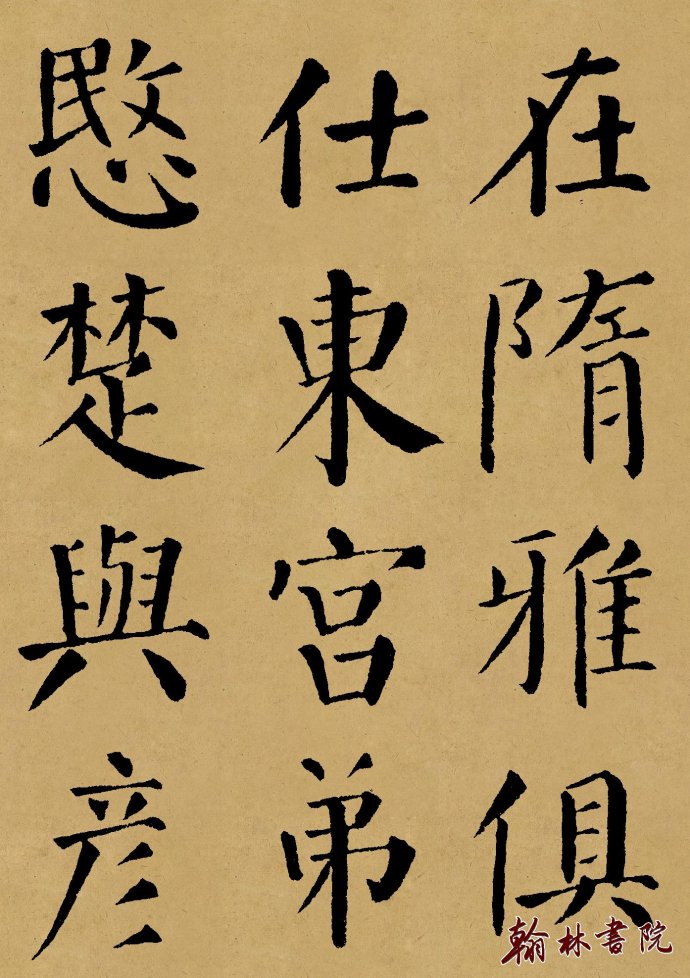 在隋雅俱
仕東宮弟
愍楚與彦
翰林書院